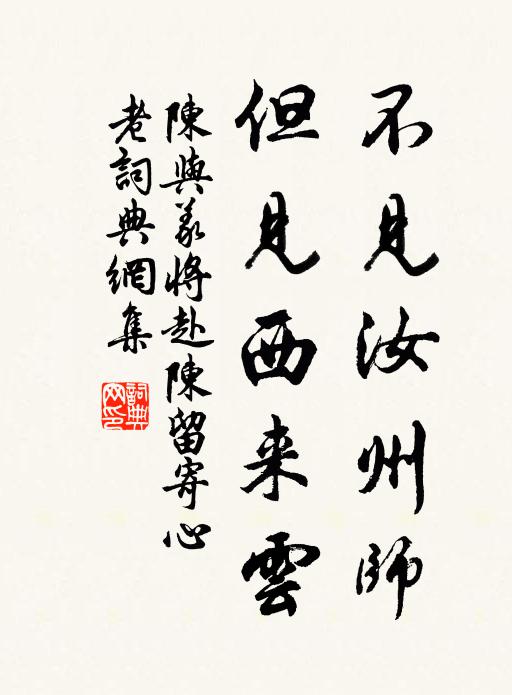 不見汝州師
但見西来雲
陳與義將赴陳留寄心
老詞典網集
詞典
网印